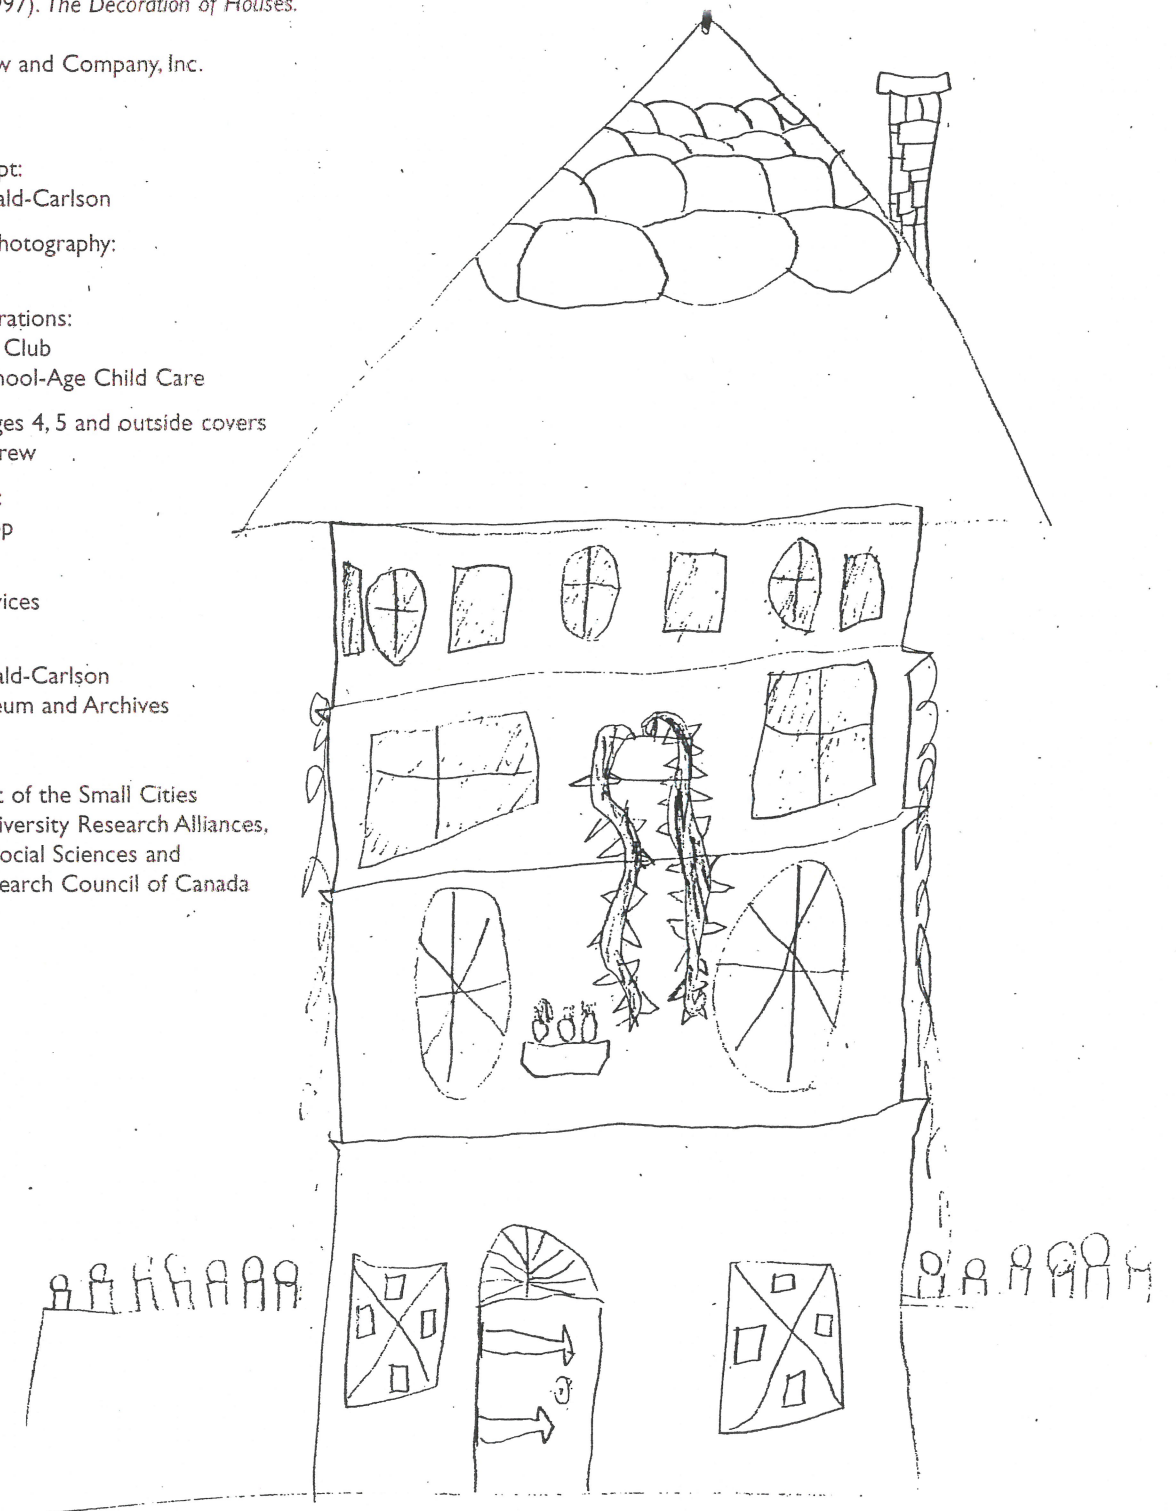 97). The Decoration of Houses.
w and Company, Inc.
pt:
ald-Carlson
hotography:
rations:
Club
hool-Age Child Care
ges 4, 5 and outside covers
rew
:
p
vices
ald-Carlson
eum and Archives
t of the Small Cities
iversity Research Alliances,
ocial Sciences and
earch Council of Canada